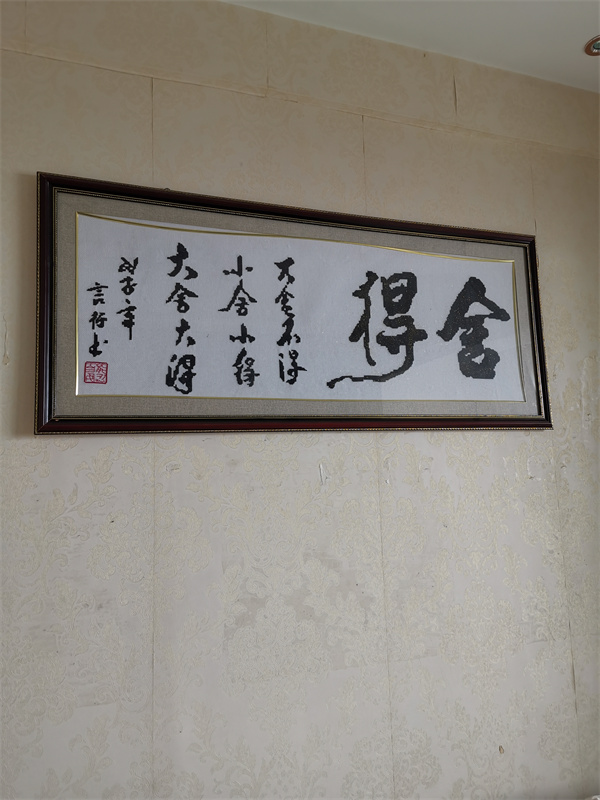 舍得
不舍不得
小舍小得
大舍大得
言行书